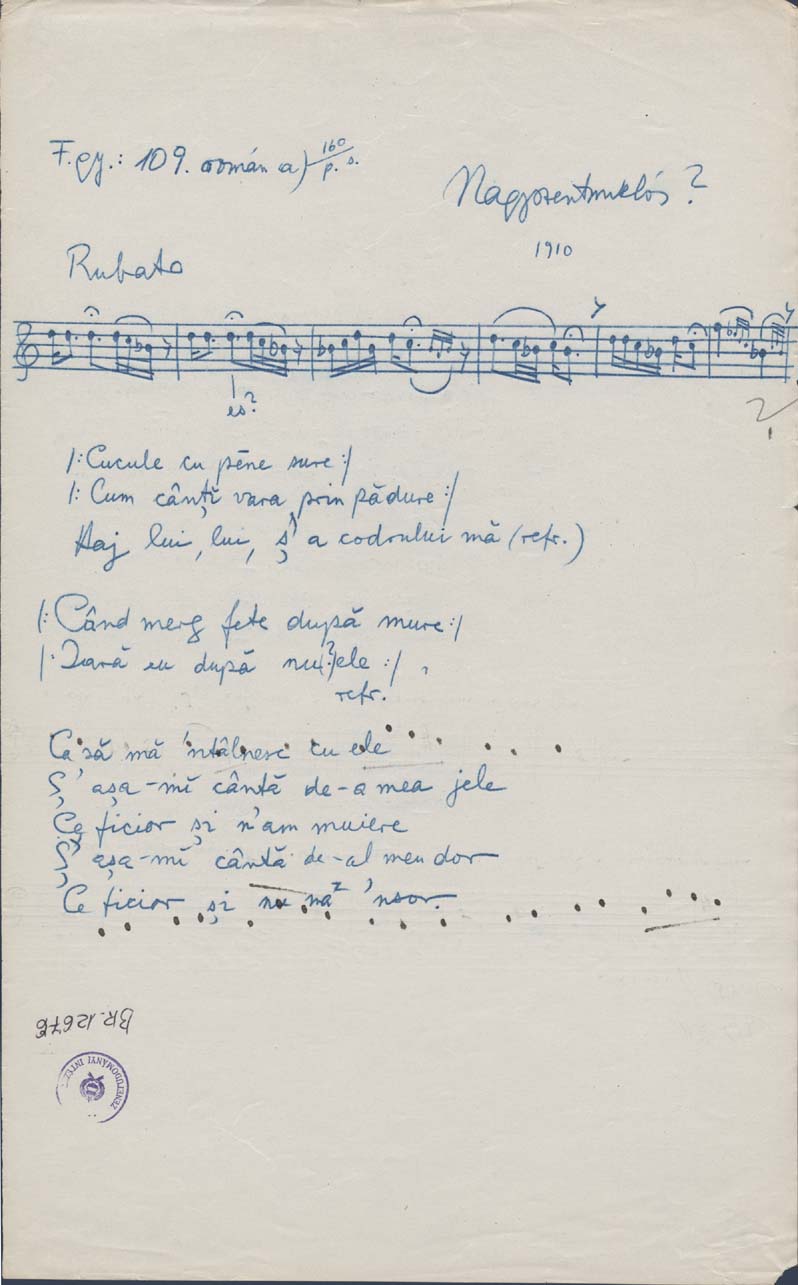 F. gy.: 109. román a) 160/p. s.
Nagyszentmiklós?
1910
Rubato
es?
?
/: Cucule cu pēne sure :/
/: Cum cânţĭ vara prin pădure :/
Haj lui, lui, ş' a codrului mă (refr.)
/: Când merg fete după mure :/
/: Iară eu după nu(?)ele :/
refr.
Ca să mă 'ntâlnesc cu ele
Ş' aşa-mĭ cântă de-a mea jele
Ce ficior şi n'am muiere
Ş' aşa-mĭ cântă de-al meu dor
Ce ficior şi nu mă 'nsor.
BR. 12676
ZENETUDOMÁNYI INTÉZ